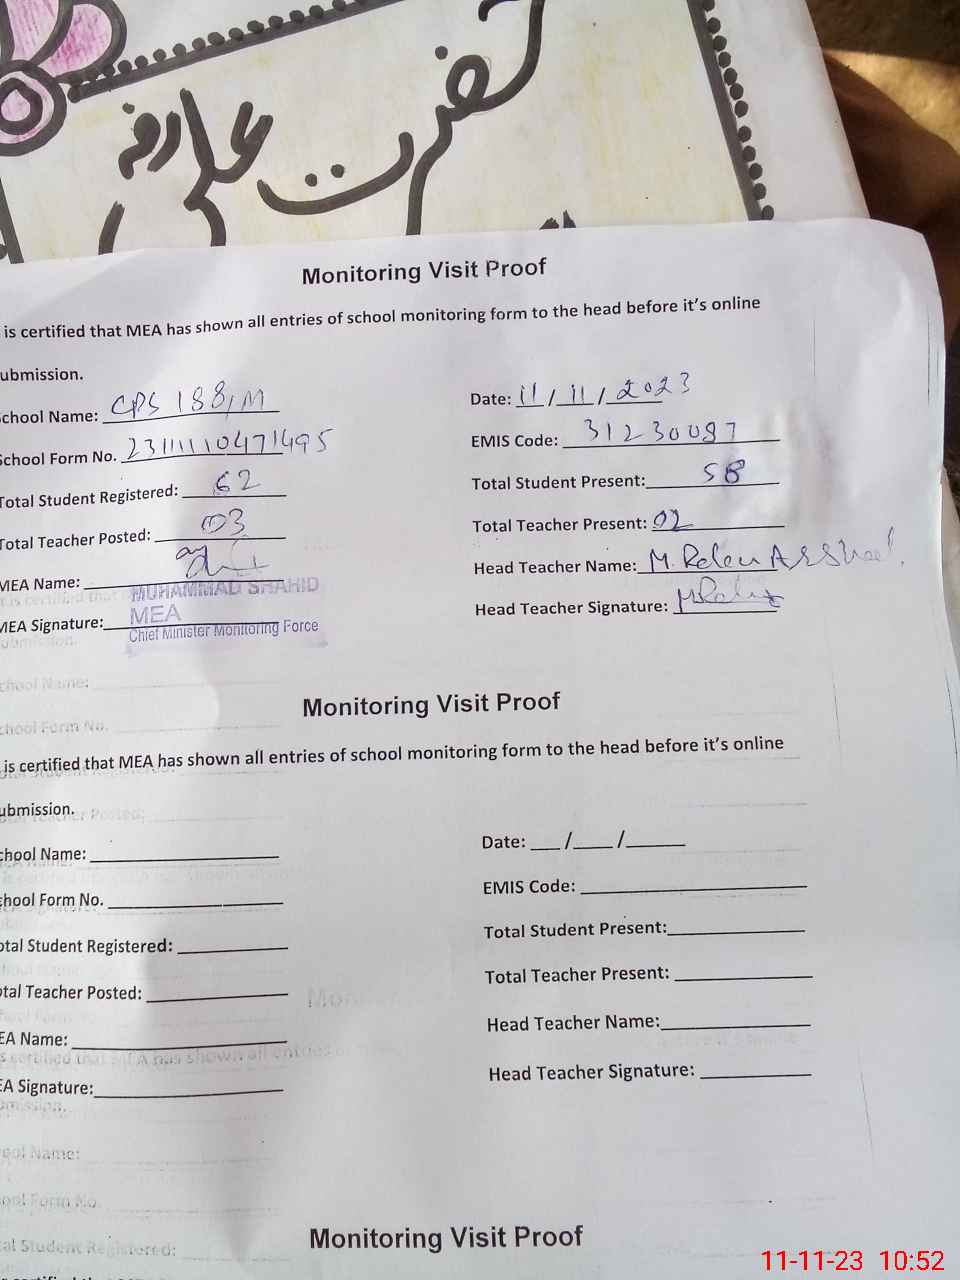 حضرت علی
Monitoring Visit Proof
is certified that MEA has shown all entries of school monitoring form to the head before it's online
ubmission.
School Name: CPS 188/M
Date: 11/11/2023
School Form No. 23111110471495
EMIS Code: 31230087
Total Student Registered: 62
Total Student Present: 58
Total Teacher Posted: 03
Total Teacher Present: 02
MEA Name:
Head Teacher Name: M.
MUHAMMAD SHAHID
MEA Signature:
MEA
Chief Minister Monitoring Force
Head Teacher Signature:
Monitoring Visit Proof
is certified that MEA has shown all entries of school monitoring form to the head before it's online
ubmission.
chool Name:
Date: / /
hool Form No.
EMIS Code:
otal Student Registered:
Total Student Present:
tal Teacher Posted:
Total Teacher Present:
EA Name:
Head Teacher Name:
EA Signature:
Head Teacher Signature:
Monitoring Visit Proof
11-11-23 10:52